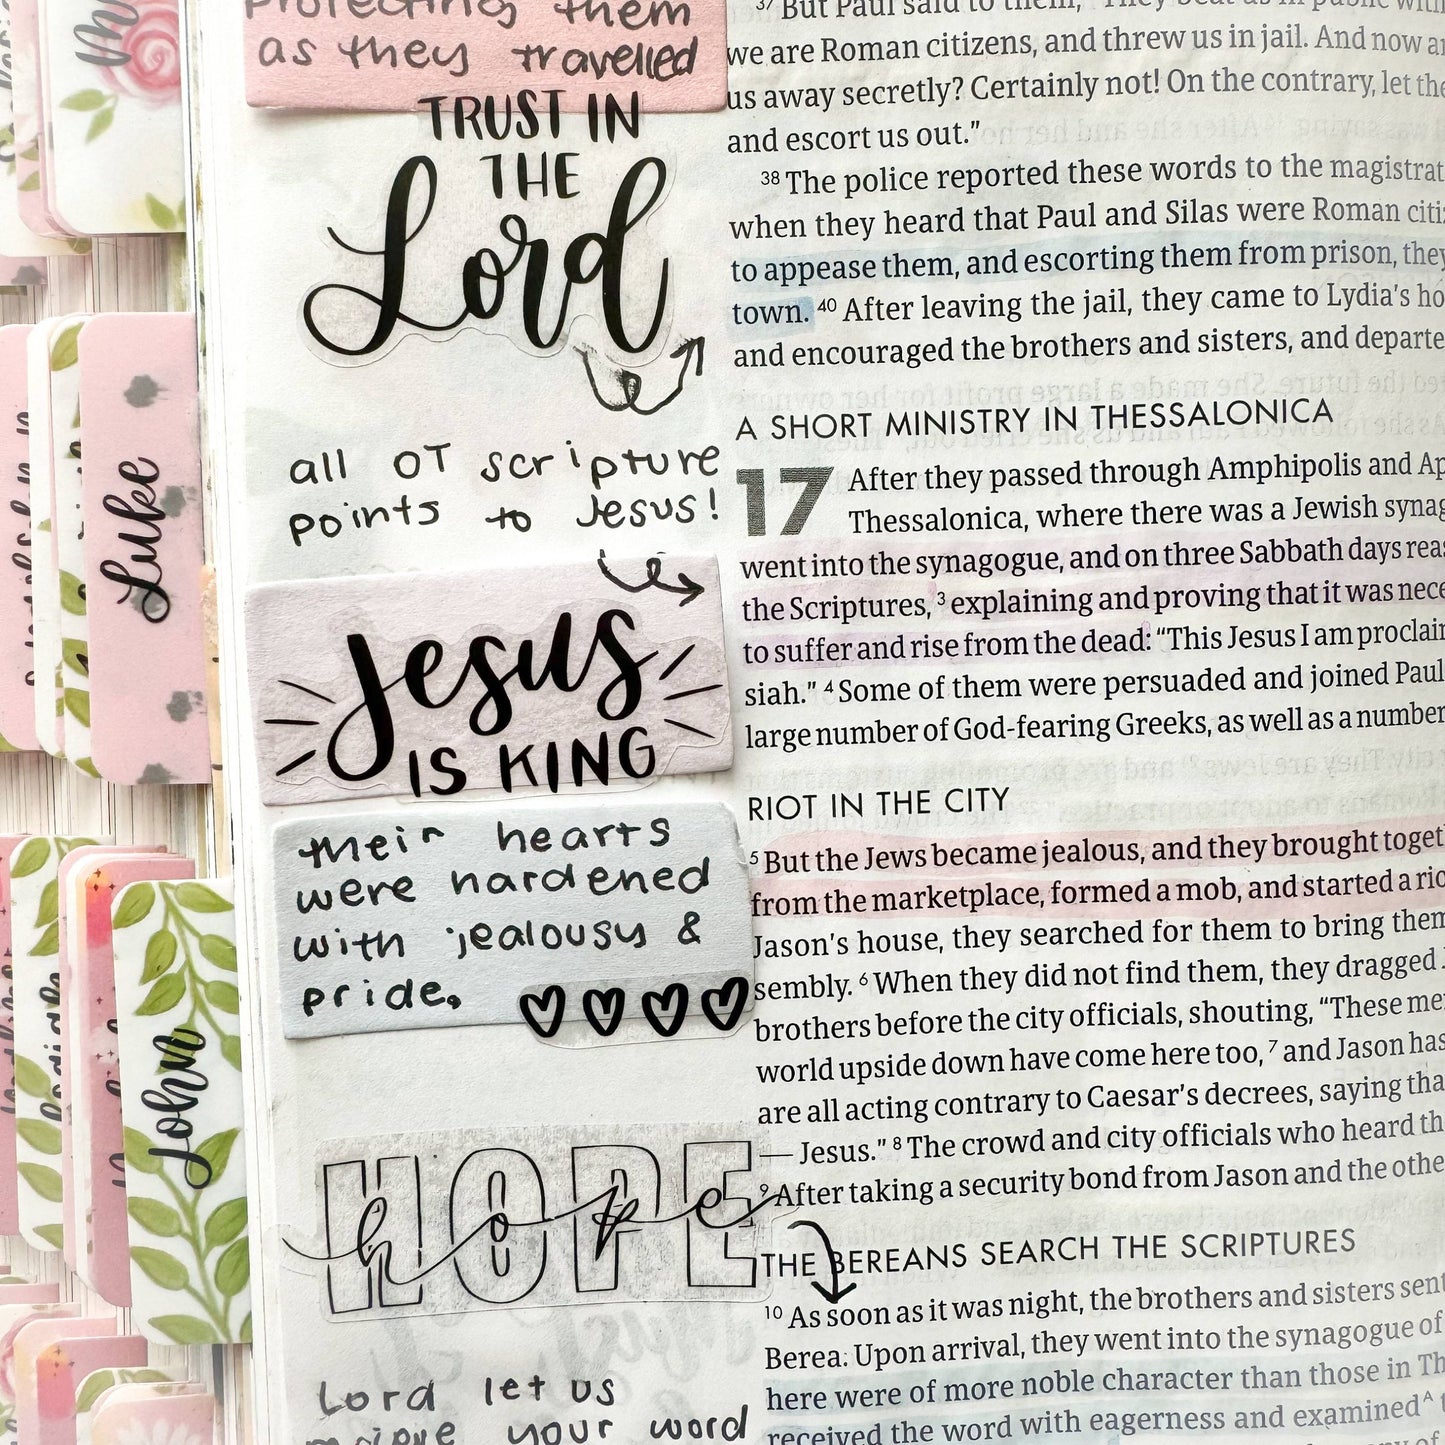 Protecting them
as they travelled
TRUST IN
THE
Lord
all OT scripture
points to Jesus!
Jesus
IS KING
their hearts
were hardened
with jealousy &
pride.
HOPE
hope
Lord let us
your word
Luke
John
37 But Paul said to them, "They beat us in public with
we are Roman citizens, and threw us in jail. And now
us away secretly? Certainly not! On the contrary, let
and escort us out."
38 The police reported these words to the
when they heard that Paul and Silas were Roman
to appease them, and escorting them from prison, they
town. 40 After leaving the jail, they came to Lydia's
and encouraged the brothers and sisters, and
A SHORT MINISTRY IN THESSALONICA
17 After they passed through Amphipolis and
Thessalonica, where there was a Jewish
went into the synagogue, and on three Sabbath days
the Scriptures, 3 explaining and proving that it was
to suffer and rise from the dead: "This Jesus I am
siah." 4 Some of them were persuaded and joined Paul
large number of God-fearing Greeks, as well as a number
RIOT IN THE CITY
5 But the Jews became jealous, and they brought
from the marketplace, formed a mob, and started a
Jason's house, they searched for them to bring them
sembly. 6 When they did not find them, they dragged
brothers before the city officials, shouting, "These
world upside down have come here too, 7 and Jason has
are all acting contrary to Caesar's decrees, saying
— Jesus." 8 The crowd and city officials who heard
9 After taking a security bond from Jason and the
THE BEREANS SEARCH THE SCRIPTURES
10 As soon as it was night, the brothers and sisters sent
Berea. Upon arrival, they went into the synagogue of
here were of more noble character than those in
received the word with eagerness and examined A